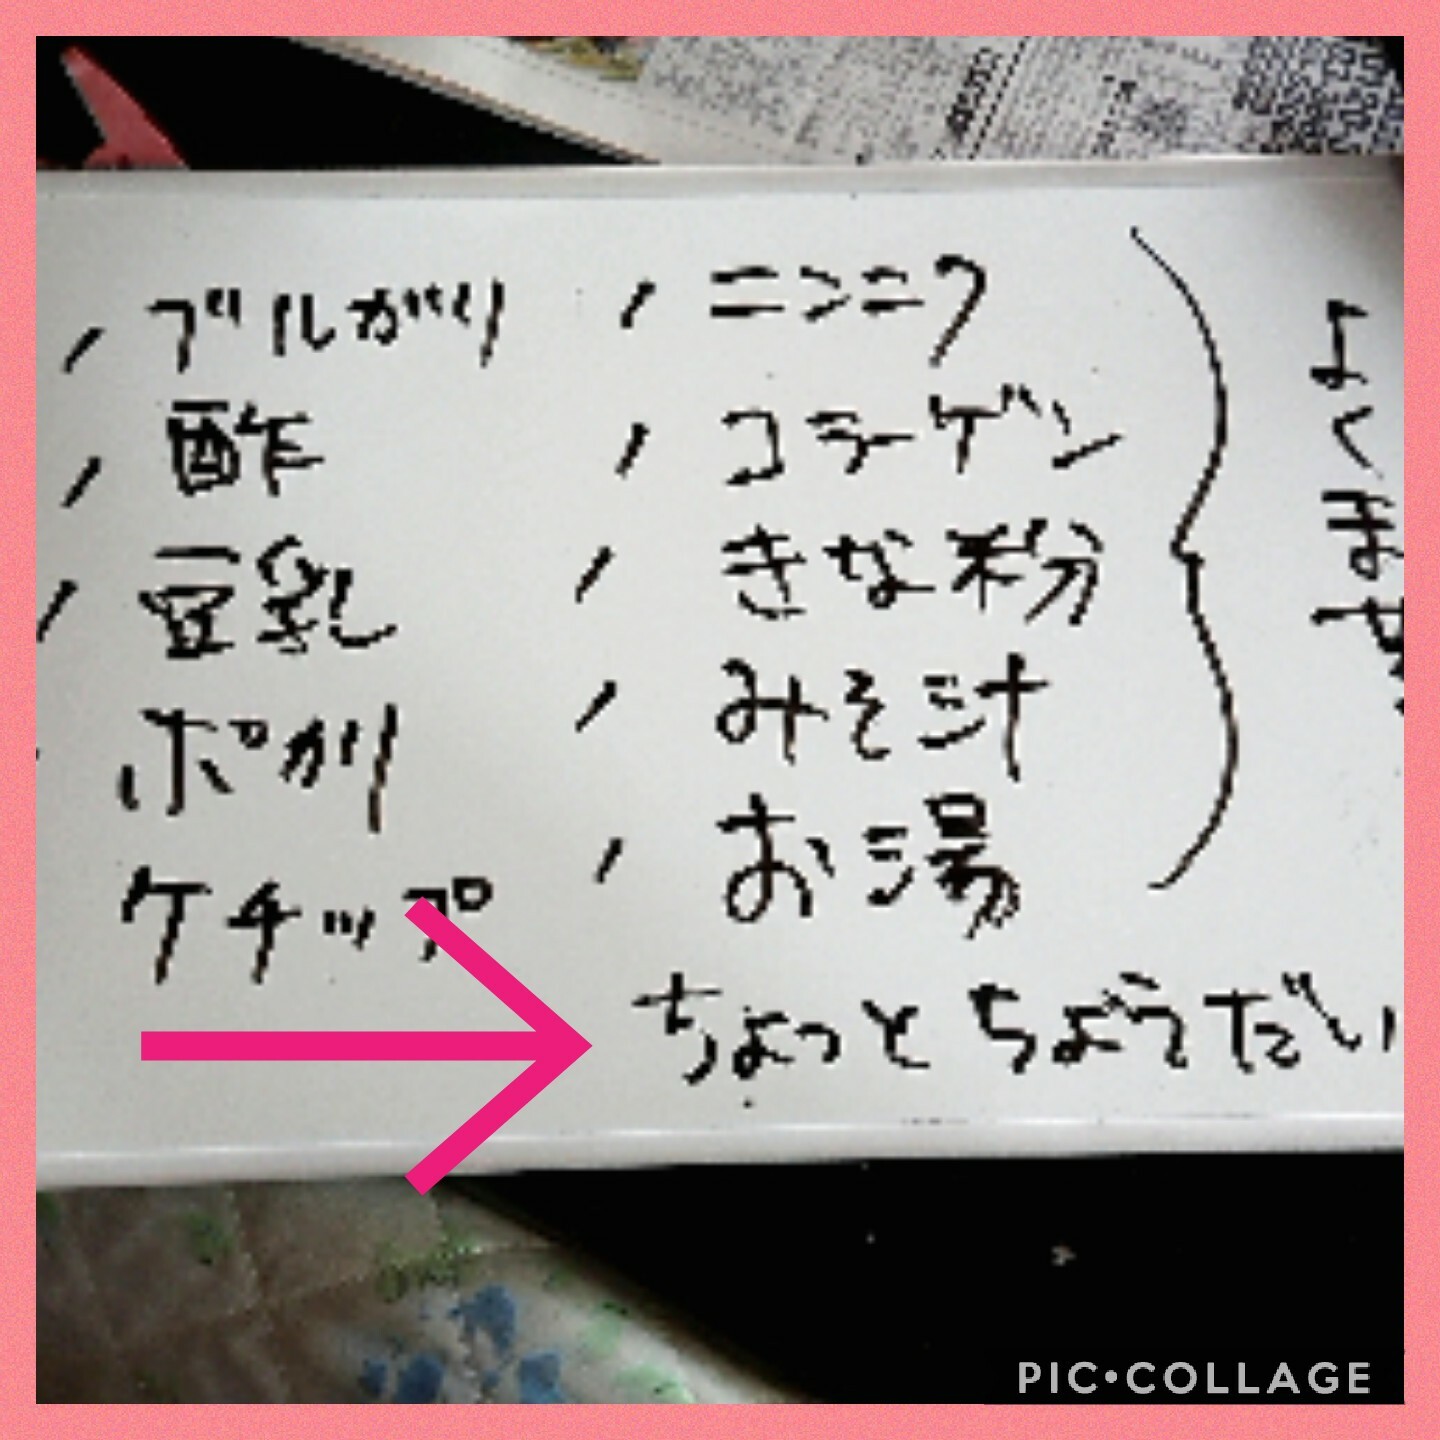 ブルガリ
酢
豆乳
ポカリ
ケチップ
ニンニク
コラーゲン
きな粉
みそ汁
お湯
よくまぜ
ちょっとちょうだい
PIC•COLLAGE